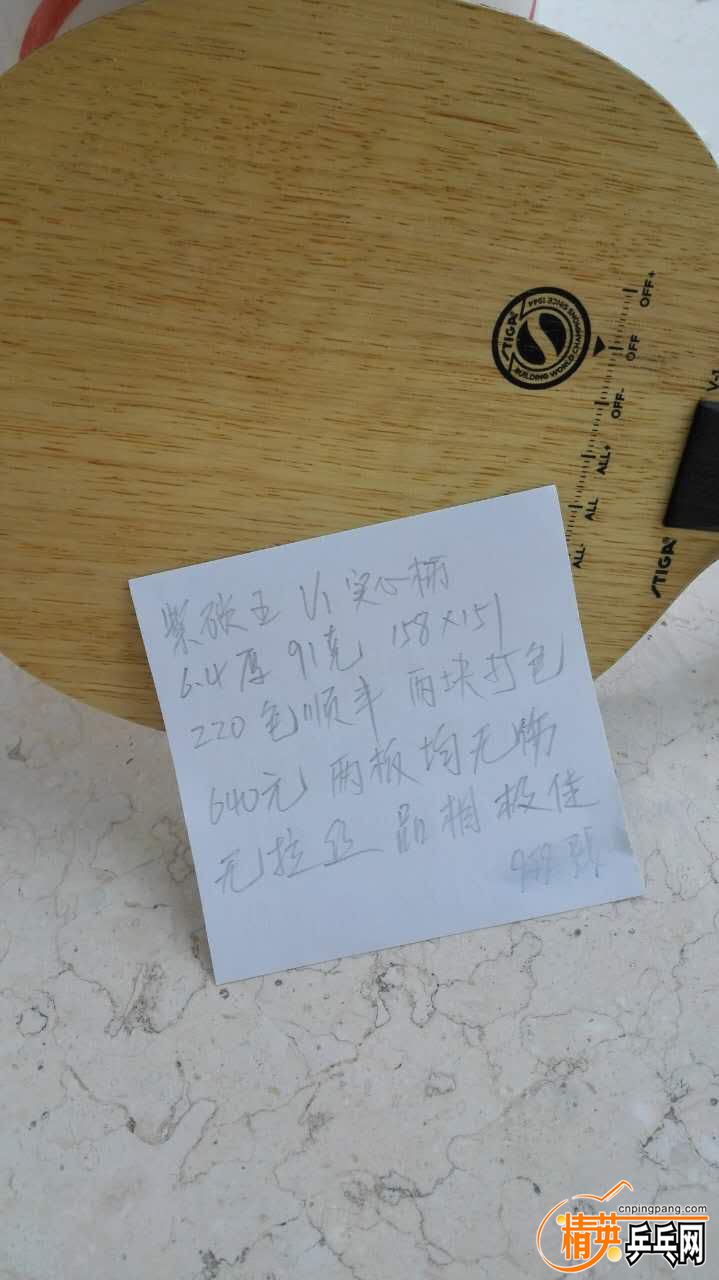 STIGA
SINCE 1944
BUILDING WORLD CHAMPIONS
OFF+
OFF
OFF-
ALL+
ALL
ALL-
V-1
STIGA
紫碳王 V1 实心柄
6.4厚 91克 158×151
220包顺丰 两块打包
640元 两板均无伤
无拉丝 品相极佳
cnpingpang.com
精英乒乓网